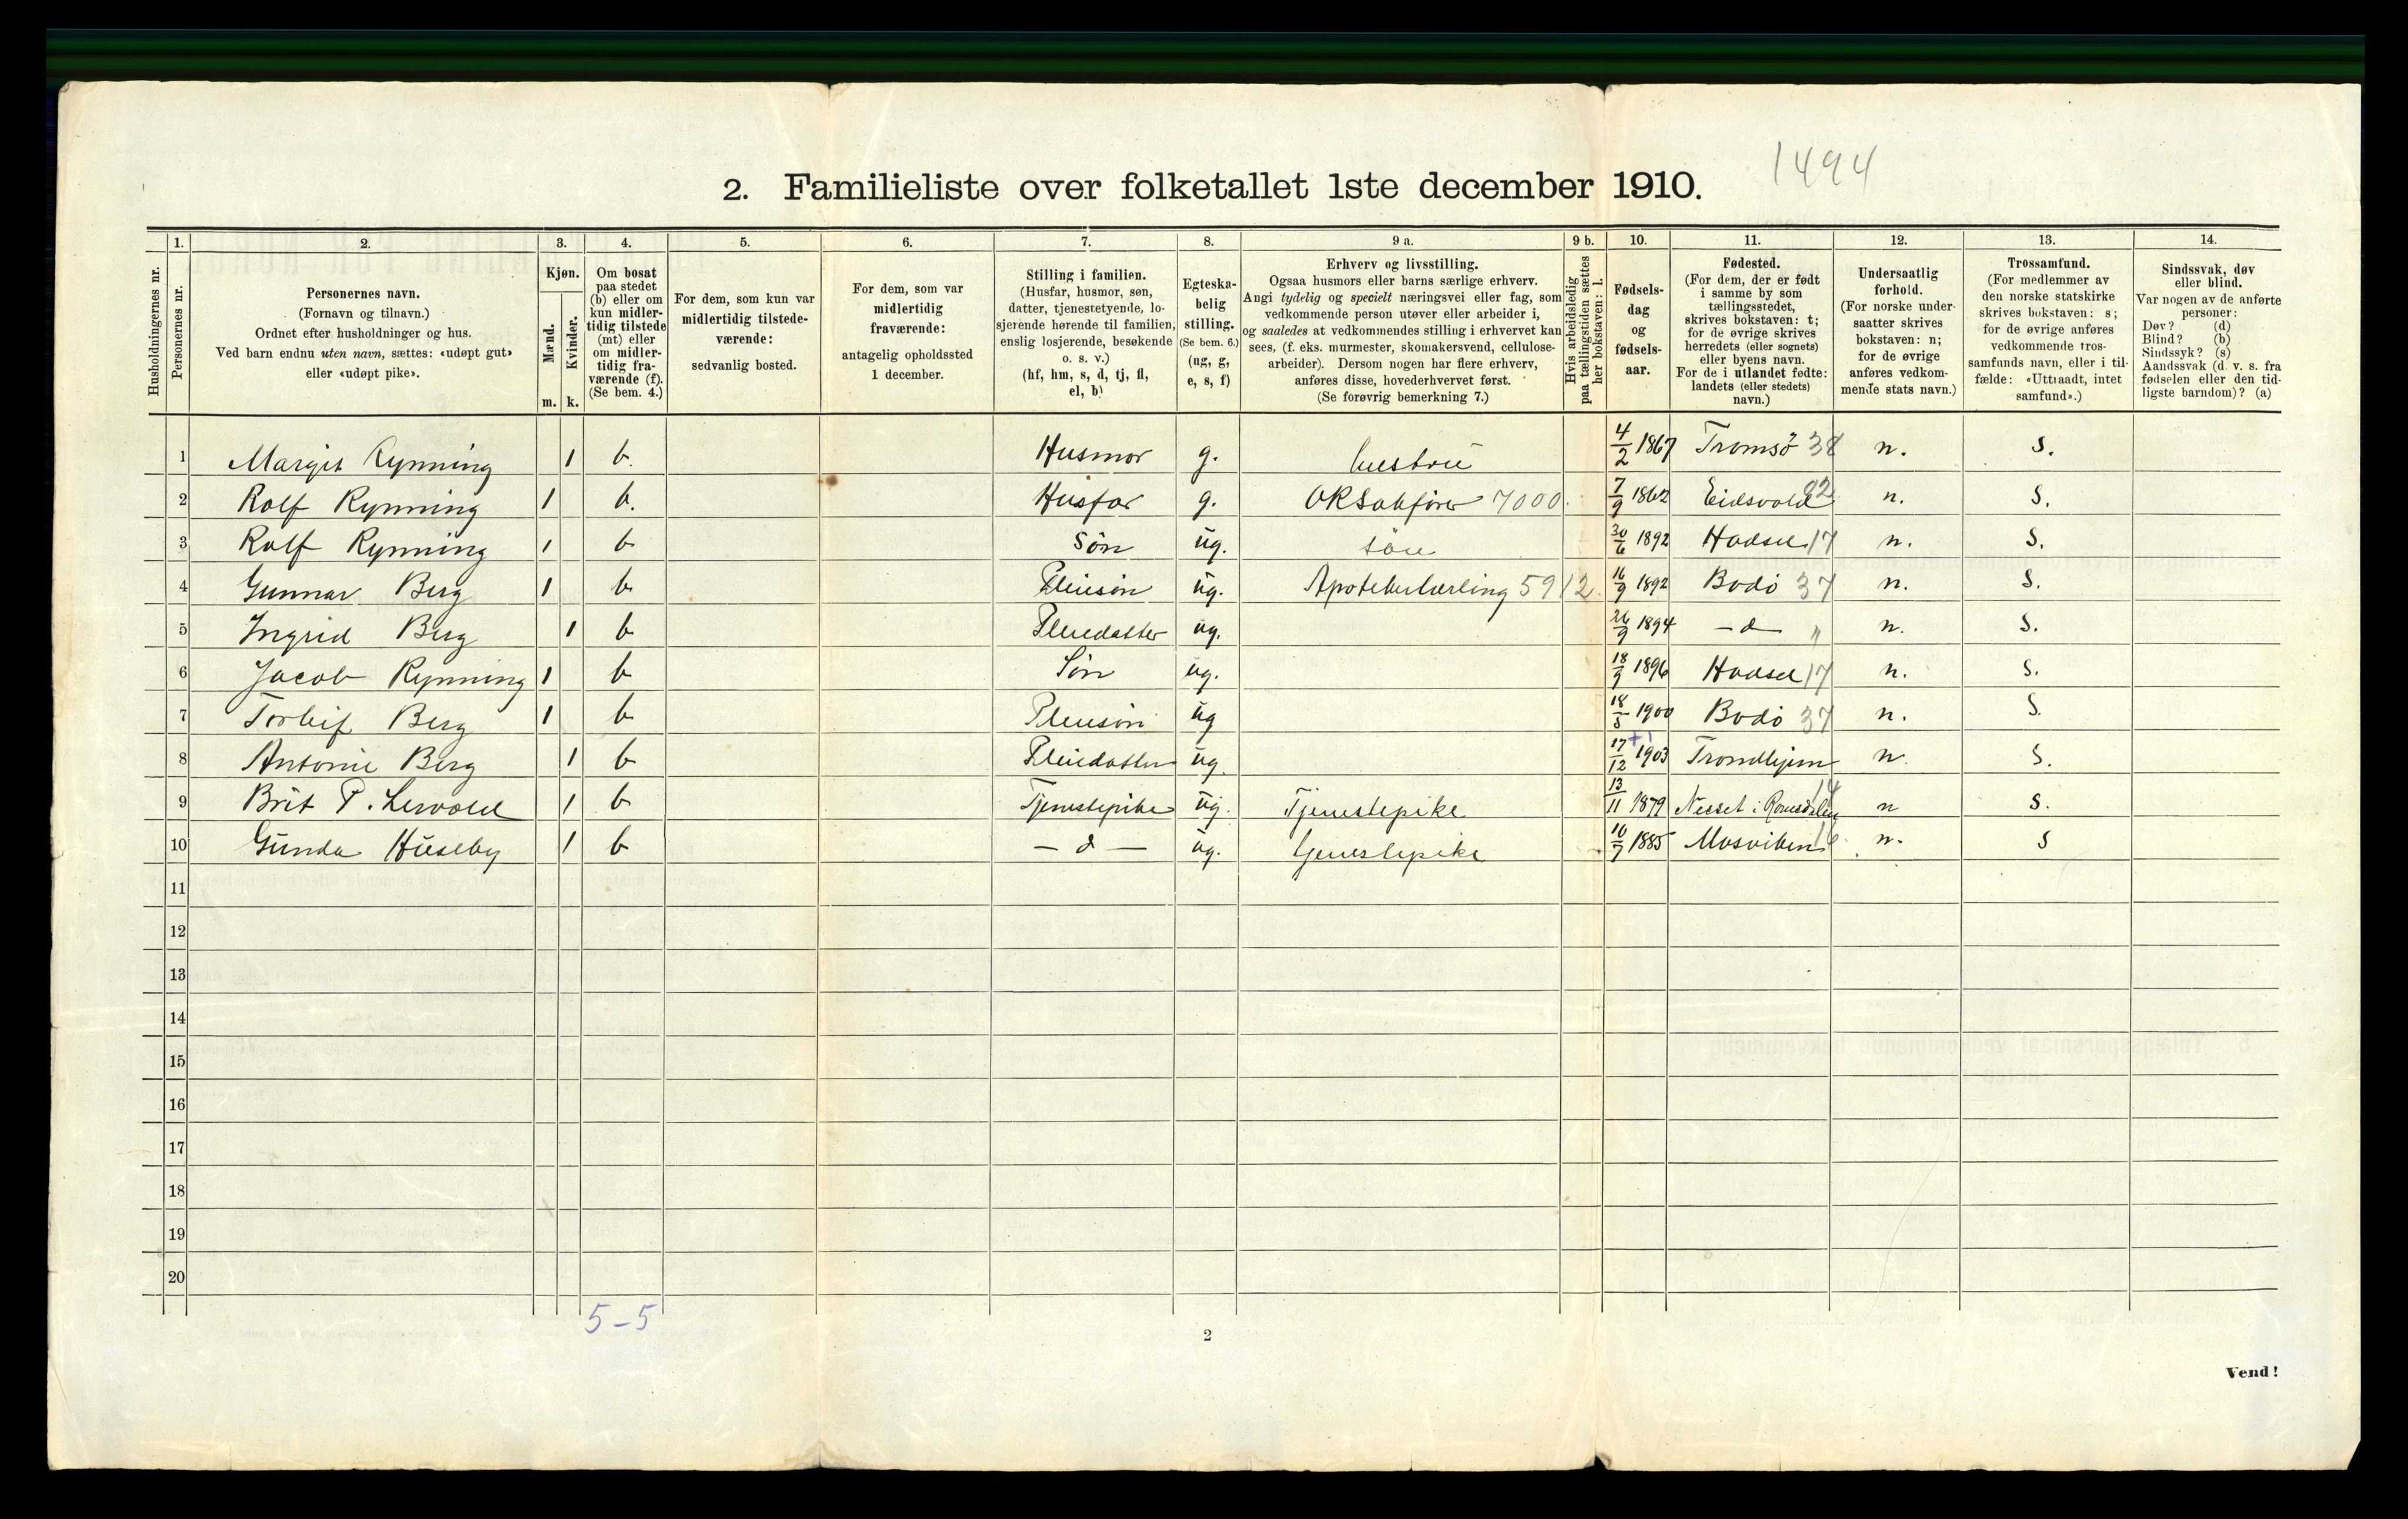 2. Familieliste over folketallet 1ste december 1910.
1494
1. 2. 3. 4. 5. 6. 7. 8. 9 a. 9 b. 10. 11. 12. 13. 14.
Husholdningernes nr.
Personernes nr.
Personernes navn.
(Fornavn og tilnavn.)
Ordnet efter husholdninger og hus.
Ved barn endnu uten navn, sættes: «udøpt gut»
eller «udøpt pike».
Kjøn.
Mænd.
Kvinder.
m. k.
Om bosat
paa stedet
(b) eller om
kun midler-
tidig tilstede
(mt) eller
om midler-
tidig fra-
værende (f).
(Se bem. 4.)
For dem, som kun var
midlertidig tilstede-
værende:
sedvanlig bosted.
For dem, som var
midlertidig
fraværende:
antagelig opholdssted
1 december.
Stilling i familien.
(Husfar, husmor, søn,
datter, tjenestetyende, lo-
sjerende hørende til familien,
enslig losjerende, besøkende
o. s. v.)
(hf, hm, s, d, tj, fl,
el, b)
Egteska-
belig
stilling.
(Se bem. 6.)
(ug, g,
e, s, f)
Erhverv og livsstilling.
Ogsaa husmors eller barns særlige erhverv.
Angi tydelig og specielt næringsvei eller fag, som
vedkommende person utøver eller arbeider i,
og saaledes at vedkommendes stilling i erhvervet kan
sees, (f. eks. murmester, skomakersvend, cellulose-
arbeider). Dersom nogen har flere erhverv,
anføres disse, hovederhvervet først.
(Se forøvrig bemerkning 7.)
Hvis arbeidsledig
paa tællingstiden sættes
her bokstaven: l.
Fødsels-
dag
og
fødsels-
aar.
Fødested.
(For dem, der er født
i samme by som
tællingsstedet,
skrives bokstaven: t;
for de øvrige skrives
herredets (eller sognets)
eller byens navn.
For de i utlandet fødte:
landets (eller stedets)
navn.)
Undersaatlig
forhold.
(For norske under-
saatter skrives
bokstaven: n;
for de øvrige
anføres vedkom-
mende stats navn.)
Trossamfund.
(For medlemmer av
den norske statskirke
skrives bokstaven: s;
for de øvrige anføres
vedkommende tros-
samfunds navn, eller i til-
fælde: «Uttraadt, intet
samfund».)
Sindssvak, døv
eller blind.
Var nogen av de anførte
personer:
Døv? (d)
Blind? (b)
Sindssyk? (s)
Aandssvak (d. v. s. fra
fødselen eller den tid-
ligste barndom)? (a)
1 Margit Rynning 1 b. Husmor g. hustru 4/2 1867 Tromsø 38 n. S.
2 Rolf Rynning 1 b. Husfar g. ORSakfører 7000. 7/9 1862 Eidsvold 92 n. S.
3 Rolf Rynning 1 b Søn ug. søn 30/6 1892 Hadsel 17 n. S.
4 Gunnar Berg 1 b Pleiesøn ug. Apotekerlærling 5912. 16/9 1892 Bodø 37 n. S.
5 Ingrid Berg 1 b Pleiedatter ug. 26/9 1894 - d - " n. S.
6 Jacob Rynning 1 b Søn ug. 18/9 1896 Hadsel 17 n. S.
7 Torleif Berg 1 b Pleiesøn ug 18/5 1900 Bodø 37 n. S.
8 Antonie Berg 1 b Pleiedatter ug. 17/12 1903 Trondhjem n. S.
9 Brit P. 1 b Tjenestepike ug. Tjenestepike 13/11 1879 Nesset i Romsdalen 14 n S.
10 Gunda Huseby 1 b - d - ug. Tjenestepike 10/7 1885 Mosviken 16 n. S
11
12
13
14
15
16
17
18
19
20
5-5
2
Vend!